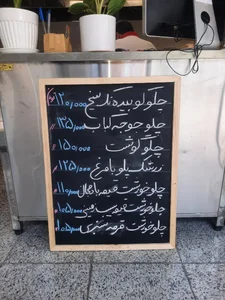 چلو کوبیده تک سیخ ۱۲۰,۰۰۰
چلو جوجه کباب ۱۳۵,۰۰۰
چلو گوشت ۱۵۰,۰۰۰
زرشک پلو با مرغ ۱۲۵,۰۰۰
چلو خورشت قیمه بادمجان ۱۱۰,۰۰۰
چلو خورشت قیمه سیب زمینی ۱۰۵,۰۰۰
چلو خورشت قرمه سبزی ۱۰۵,۰۰۰